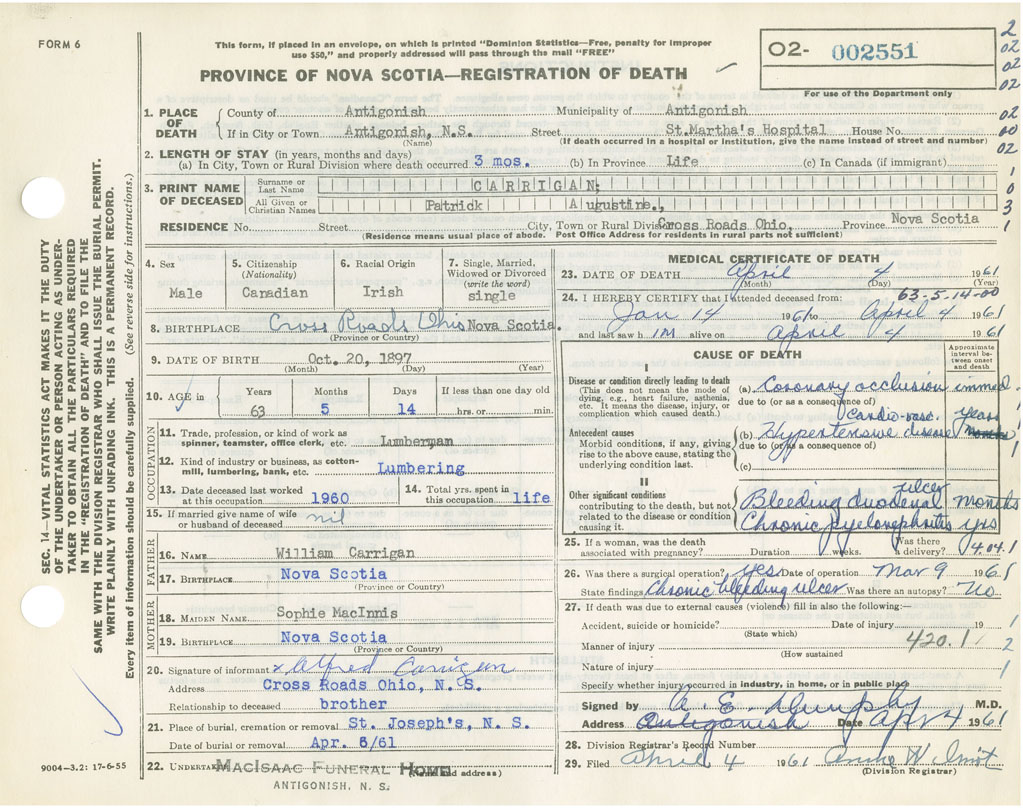 FORM 6
This form, if placed in an envelope, on which is printed "Dominion Statistics—Free, penalty for improper
use $50," and properly addressed will pass through the mail "FREE"
PROVINCE OF NOVA SCOTIA—REGISTRATION OF DEATH
02- 002551
For use of the Department only
2
02
02
02
02
00
02
1
0
3
1
SEC. 14.—VITAL STATISTICS ACT MAKES IT THE DUTY
OF THE UNDERTAKER OR PERSON ACTING AS UNDER-
TAKER TO OBTAIN ALL THE PARTICULARS REQUIRED
IN THE "REGISTRATION OF DEATH" AND TO FILE THE
SAME WITH THE DIVISION REGISTRAR WHO SHALL ISSUE THE BURIAL PERMIT.
WRITE PLAINLY WITH UNFADING INK. THIS IS A PERMANENT RECORD.
Every item of information should be carefully supplied. (See reverse side for instructions.)
1. PLACE OF DEATH
County of Antigonish Municipality of Antigonish
If in City or Town Antigonish, N.S. Street St.Martha's Hospital House No.
(Name) (If death occurred in a hospital or institution, give the name instead of street and number)
2. LENGTH OF STAY (in years, months and days)
(a) In City, Town or Rural Division where death occurred 3 mos. (b) In Province Life (c) In Canada (if immigrant)
3. PRINT NAME OF DECEASED
Surname or Last Name CARRIGAN;
All Given or Christian Names Patrick Augustine.,
RESIDENCE No. Street City, Town or Rural Divis Cross Roads Ohio, Province Nova Scotia
(Residence means usual place of abode. Post Office Address for residents in rural parts not sufficient)
4. Sex
Male
5. Citizenship
(Nationality)
Canadian
6. Racial Origin
Irish
7. Single, Married,
Widowed or Divorced
(write the word)
single
8. BIRTHPLACE Cross Roads Ohio Nova Scotia.
(Province or Country)
9. DATE OF BIRTH Oct. 20, 1897
(Month) (Day) (Year)
10. AGE in
Years Months Days If less than one day old
63 5 14 hrs. or min.
OCCUPATION
11. Trade, profession, or kind of work as
spinner, teamster, office clerk, etc. Lumberman
12. Kind of industry or business, as cotton-
mill, lumbering, bank, etc. Lumbering
13. Date deceased last worked
at this occupation 1960
14. Total yrs. spent in
this occupation life
15. If married give name of wife
or husband of deceased nil
FATHER
16. NAME William Carrigan
17. BIRTHPLACE Nova Scotia
(Province or Country)
MOTHER
18. MAIDEN NAME Sophie MacInnis
19. BIRTHPLACE Nova Scotia
(Province or Country)
20. Signature of informant x Alfred Carrigan
Address Cross Roads Ohio, N. S.
Relationship to deceased brother
21. Place of burial, cremation or removal St. Joseph's, N. S.
Date of burial or removal Apr. 6/61
22. UNDERTAK MACISAAC FUNERAL HOME (Name and address)
ANTIGONISH, N. S.
9004—3.2: 17-6-55
MEDICAL CERTIFICATE OF DEATH
23. DATE OF DEATH April 4 1961
(Month) (Day) (Year)
63-5-14-00
24. I HEREBY CERTIFY that I attended deceased from:
Jan 14 1961 to April 4 1961
and last saw h im alive on April 4 1961
CAUSE OF DEATH
Approximate
interval be-
tween onset
and death
I
Disease or condition directly leading to death
(This does not mean the mode of
dying, e.g., heart failure, asthenia,
etc. It means the disease, injury, or
complication which caused death.)
(a) Coronary occlusion immed.
due to (or as a consequence of)
Antecedent causes
Morbid conditions, if any, giving
rise to the above cause, stating the
underlying condition last.
cardio-vasc. years
(b) Hypertensive disease
due to (or as a consequence of)
(c)
II
Other significant conditions
contributing to the death, but not
related to the disease or condition
causing it.
ulcer
Bleeding duodenal months
Chronic Pyelonephritis yrs
25. If a woman, was the death
associated with pregnancy? Duration weeks. Was there
a delivery?
26. Was there a surgical operation? yes Date of operation Mar 9 1961
State findings Chronic bleeding ulcer Was there an autopsy? No
27. If death was due to external causes (violence) fill in also the following:—
Accident, suicide or homicide? Date of injury 19
(State which)
Manner of injury 420.1
(How sustained
Nature of injury
Specify whether injury occurred in industry, in home, or in public place
Signed by A. E. Murphy M.D.
Address Antigonish Date Apr 4 1961
28. Division Registrar's Record Number
29. Filed April 4 1961
(Division Registrar)